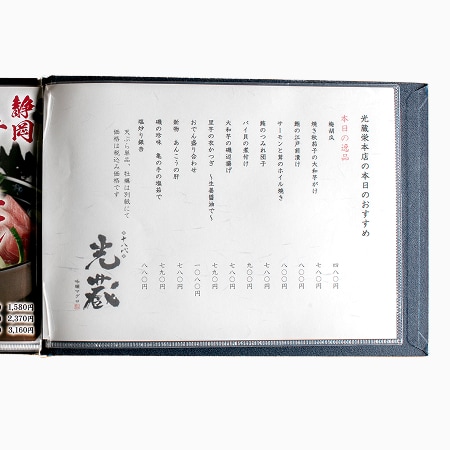 光蔵栄本店の本日のおすすめ
本日の逸品
梅胡瓜
四八〇円
焼き秋茄子の大和芋がけ
七八〇円
鮪の江戸前漬け
八八〇円
サーモンと茸のホイル焼き
八八〇円
鮪のつみれ団子
七八〇円
バイ貝の煮付け
九八〇円
大和芋の磯辺揚げ
七八〇円
里芋の衣かつぎ ～生姜醤油で～
七八〇円
おでん盛り合わせ
一〇八〇円
新物 あんこうの肝
七八〇円
磯の珍味 亀の手の塩茹で
七八〇円
塩炒り銀杏
八八〇円
天ぷら単品、牡蠣は別紙にて
価格は税込み価格です
十八代
光蔵
味噌マグロ
静岡
1,580円
2,370円
3,160円